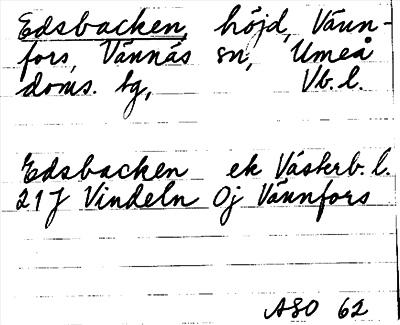 Edsbacken, höjd, Vänn-
fors, Vännäs sn, Umeå
doms. tg, Vb. l.
Edsbacken ek Västerb. l.
21J Vindeln Oj Vännfors
ASO 62